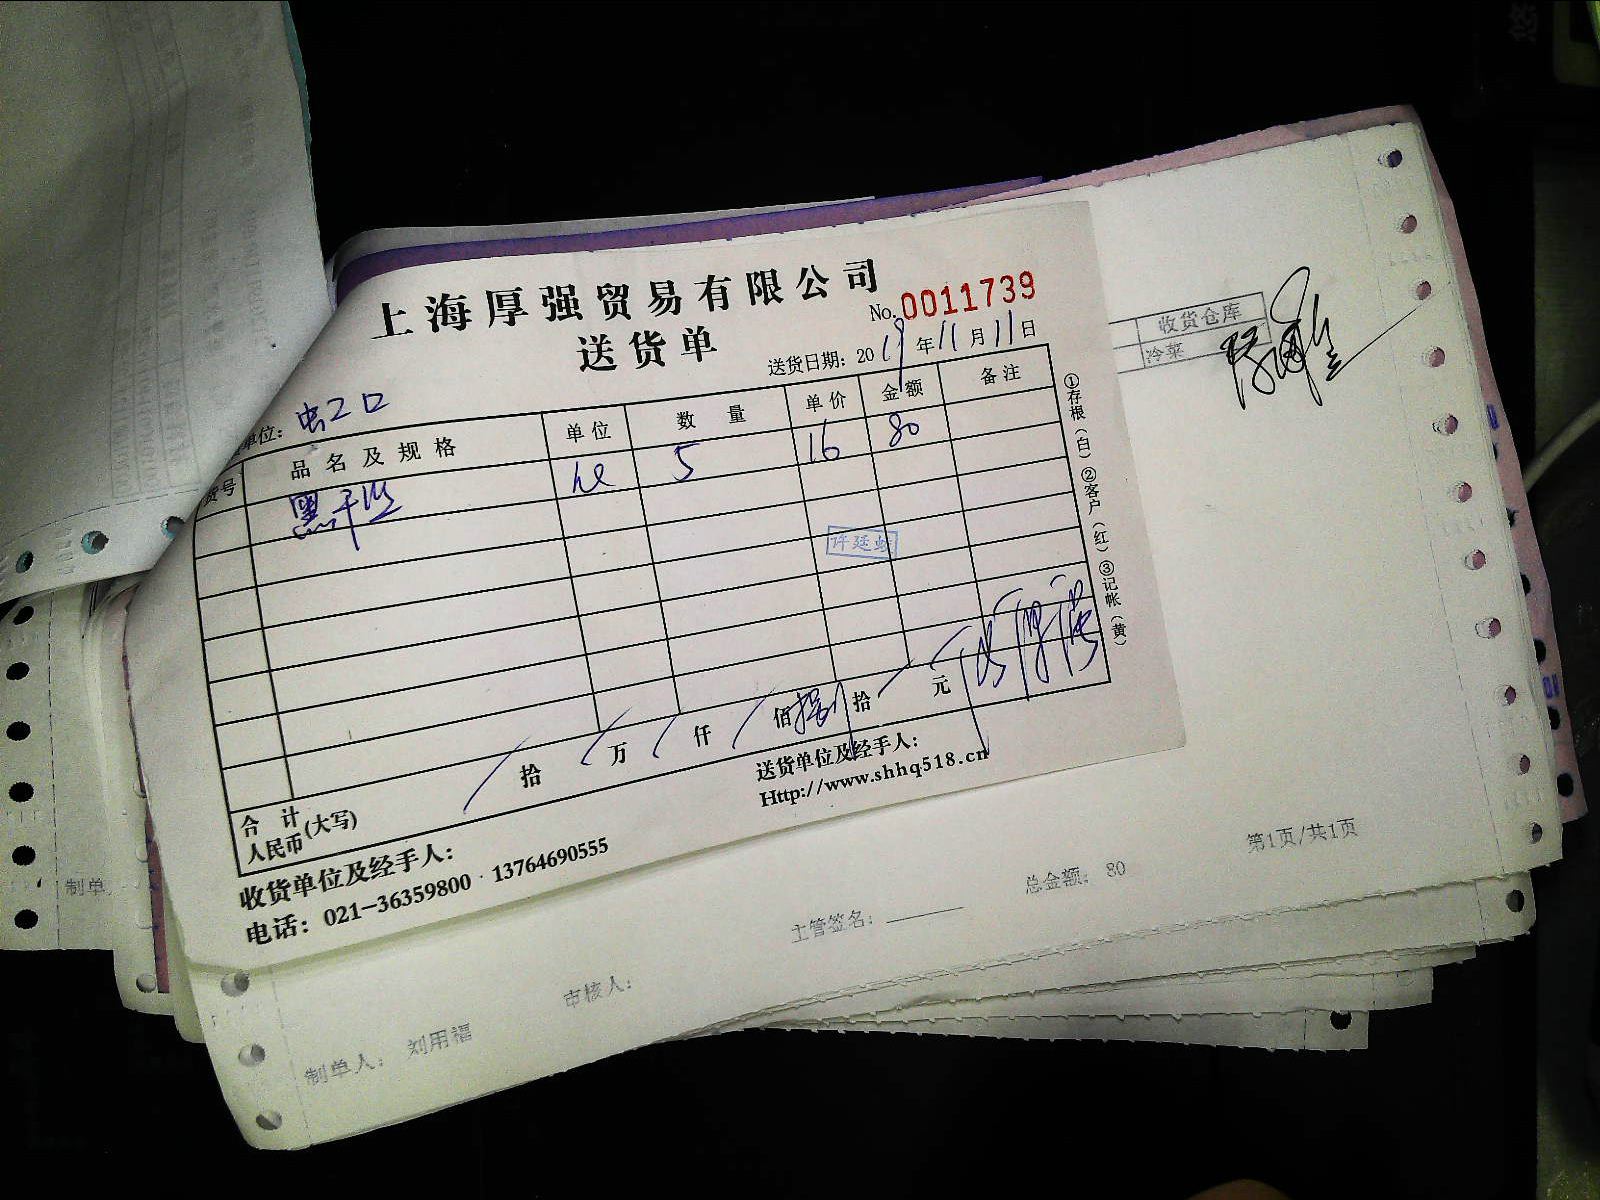 上海厚强贸易有限公司
No. 0011739
送货单
送货日期: 2019年11月11日
单位: 虫工口
货号 品名及规格 单位 数量 单价 金额 备注
黑干丝 5 16 80
许廷
合计人民币(大写) 拾 万 仟 佰 捌拾 元
收货单位及经手人:
送货单位及经手人:
电话: 021-36359800 · 13764690555
Http://www.shhq518.cn
①存根(白) ②客户(红) ③记帐(黄)
收货仓库
冷菜
第1页/共1页
总金额: 80
主管签名:
审核人:
制单人: 刘用福
制单